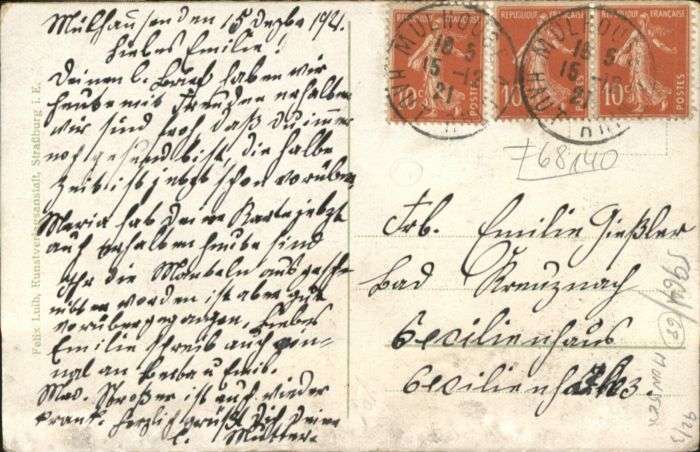 Mülhausen den 15 Dezbr 1921.
Liebes Emilie!
Deinen l. Brief haben wir
heute mit Freuden erhalten
wir sind froh, daß Du immer
noch gesund bist, die halbe
Zeit ist jetzt schon vorüber.
Maria hab Deine Karte jetzt
auch erhalten heute sind
Ihr die Mandeln
worden ist aber gut
vorübergegangen, Liebes
Emilie schreib auch
mal an
Mad. Stroßer ist auch wieder
krank. Herzlich grüßt Dich Deine
l. Mutter.
Felix Luib, Kunstverlagsanstalt, Straßburg i. E.
REPUBLIQUE FRANÇAISE
10c
POSTES
REPUBLIQUE FRANÇAISE
10c
POSTES
REPUBLIQUE FRANÇAISE
10c
POSTES
MULHOUSE
HAUT-RHIN
18 5
15 -12
21
MULHOUSE
HAUT-RHIN
18 5
15 -12
21
F68140
Frl. Emilie Gießler
Bad Kreuznach
Cecilienhaus
Cecilienstr.